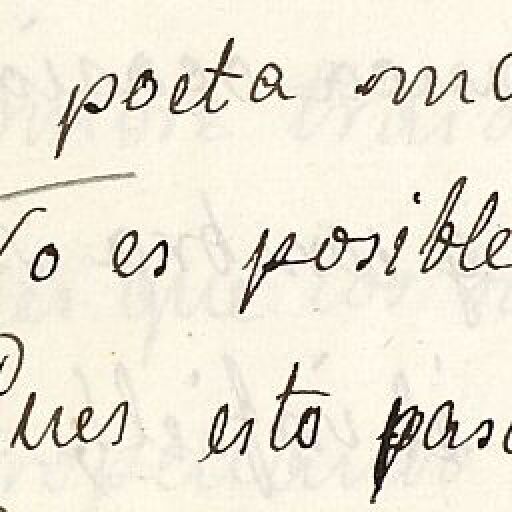 poeta
No es posible
Pues esto pas